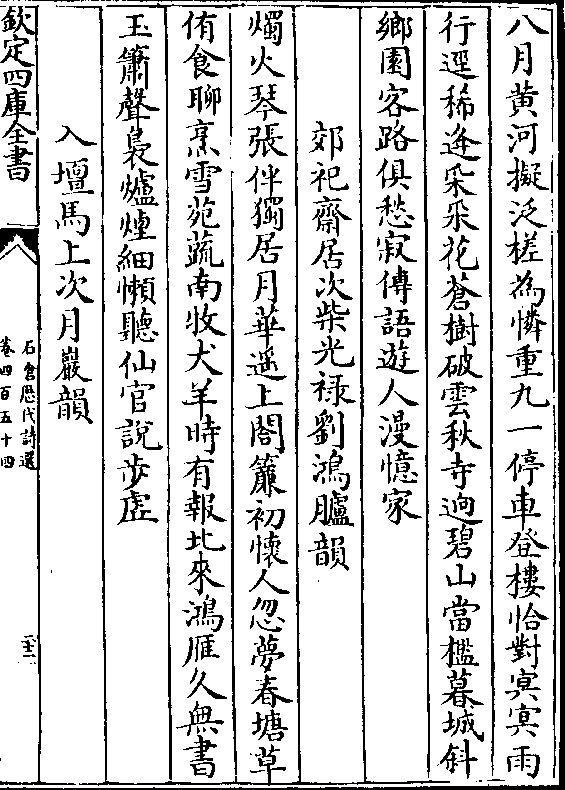 八月黄河擬泛槎為憐重九一停車登樓恰對冥冥雨
行逕稀逢采采花蒼樹破雲秋寺迥碧山當檻暮城斜
鄉園客路俱愁寂傳語遊人漫憶家
郊祀齋居次柴光禄劉鴻臚韻
燭火琴張伴獨居月華遥上閣簾初懷人忽夢春塘草
侑食聊烹雪苑蔬南牧犬羊時有報北來鴻雁久無書
玉簫聲裊爐煙細懶聽仙官說步虛
入壇馬上次月巖韻
欽定四庫全書
石倉歷代詩選
卷四百五十四